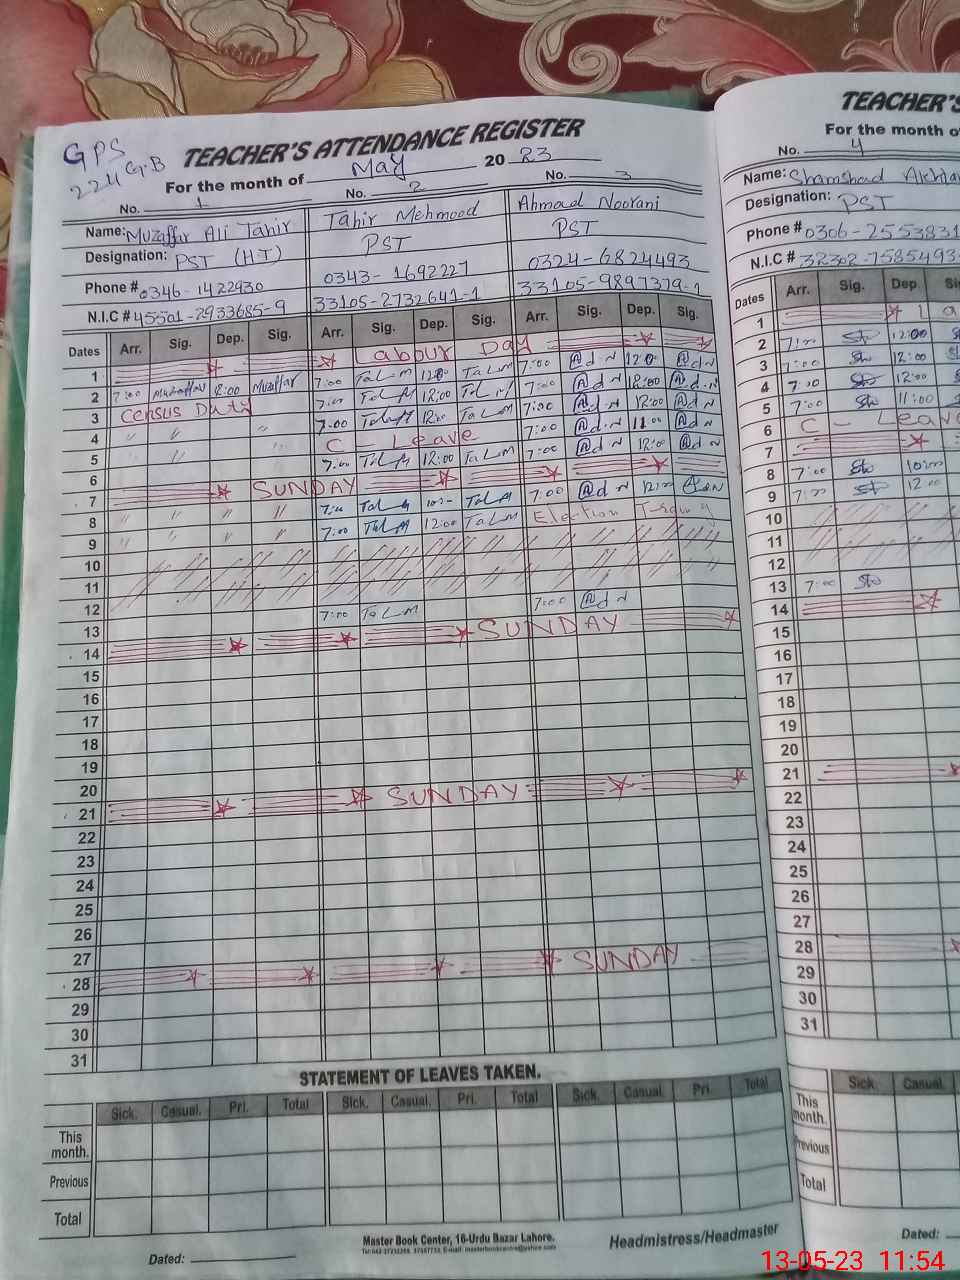 GPS
224 G.B
TEACHER'S ATTENDANCE REGISTER
For the month of May 2023
No. 1 No. 2 No. 3
Name: Muzaffar Ali Tahir Tahir Mehmood Ahmad Noorani
Designation: PST (H.T) PST PST
Phone # 0346-1422930 0343-1692227 0324-6824493
N.I.C # 45501-2933685-9 33105-2732641-1 33105-9897379-1
Dates Arr. Sig. Dep. Sig. Arr. Sig. Dep. Sig. Arr. Sig. Dep. Sig.
1 Labour Day
2 7:00 Muzaffar 12:00 Muzaffar 7:00 Tal-M 12:00 Tal-M 7:00 @d-N 12:00 @d-N
3 Census Duty 7:00 Tal-M 12:00 Tal-M 7:00 @d-N 12:00 @d-N
4 " " " 7:00 Tal-M 12:00 Tal-M 7:00 @d-N 12:00 @d-N
5 " " " C - Leave 7:00 @d-N 11:00 @d-N
6 7:00 Tal-M 12:00 Tal-M 7:00 @d-N 12:00 @d-N
7 SUNDAY
8 " " " " 7:00 Tal-M Tal-M 7:00 @d-N @d-N
9 " " " " 7:00 Tal-M 12:00 Tal-M Election
10
11
12
13 7:00 Tal-M 7:00 @d-N
14 SUNDAY
15
16
17
18
19
20
21 SUNDAY
22
23
24
25
26
27
28 SUNDAY
29
30
31
STATEMENT OF LEAVES TAKEN.
Sick. Casual. Pri. Total Sick. Casual. Pri. Total Sick. Casual. Pri. Total
This month.
Previous
Total
Master Book Center, 16-Urdu Bazar Lahore.
Dated: Headmistress/Headmaster
TEACHER'S
For the month of
No. 4
Name: Shamshad Akhtar
Designation: PST
Phone # 0306-2553831
N.I.C # 32302-7585493-
Dates Arr. Sig. Dep.
1 La
2 7:00 12:00
3 7:00 12:00
4 7:00 12:00
5 7:00 11:00
6 C - Leave
7
8 7:00
9 7:00 12:00
10
11
12
13 7:00
14
15
16
17
18
19
20
21
22
23
24
25
26
27
28
29
30
31
Sick. Casual.
This month.
Previous
Total
Dated:
13-05-23 11:54